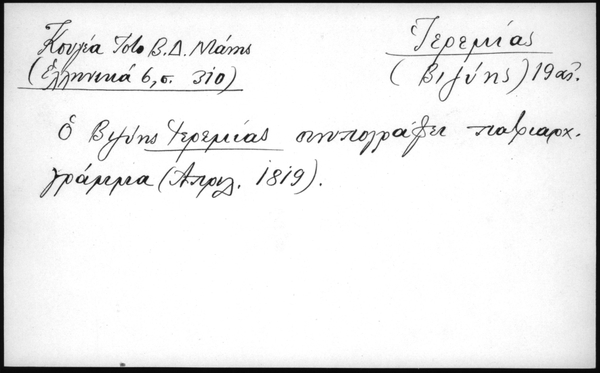 Κουγέα Ιστο Β.Δ. Μάνης
(Ἑλληνικά 6, σ. 310)
Ἱερεμίας
(Βιζύης) 19 αἰ.
Ὁ Βιζύης Ἱερεμίας συνυπογράφει πατριαρχ.
γράμμα (Ἀπριλ. 1819).